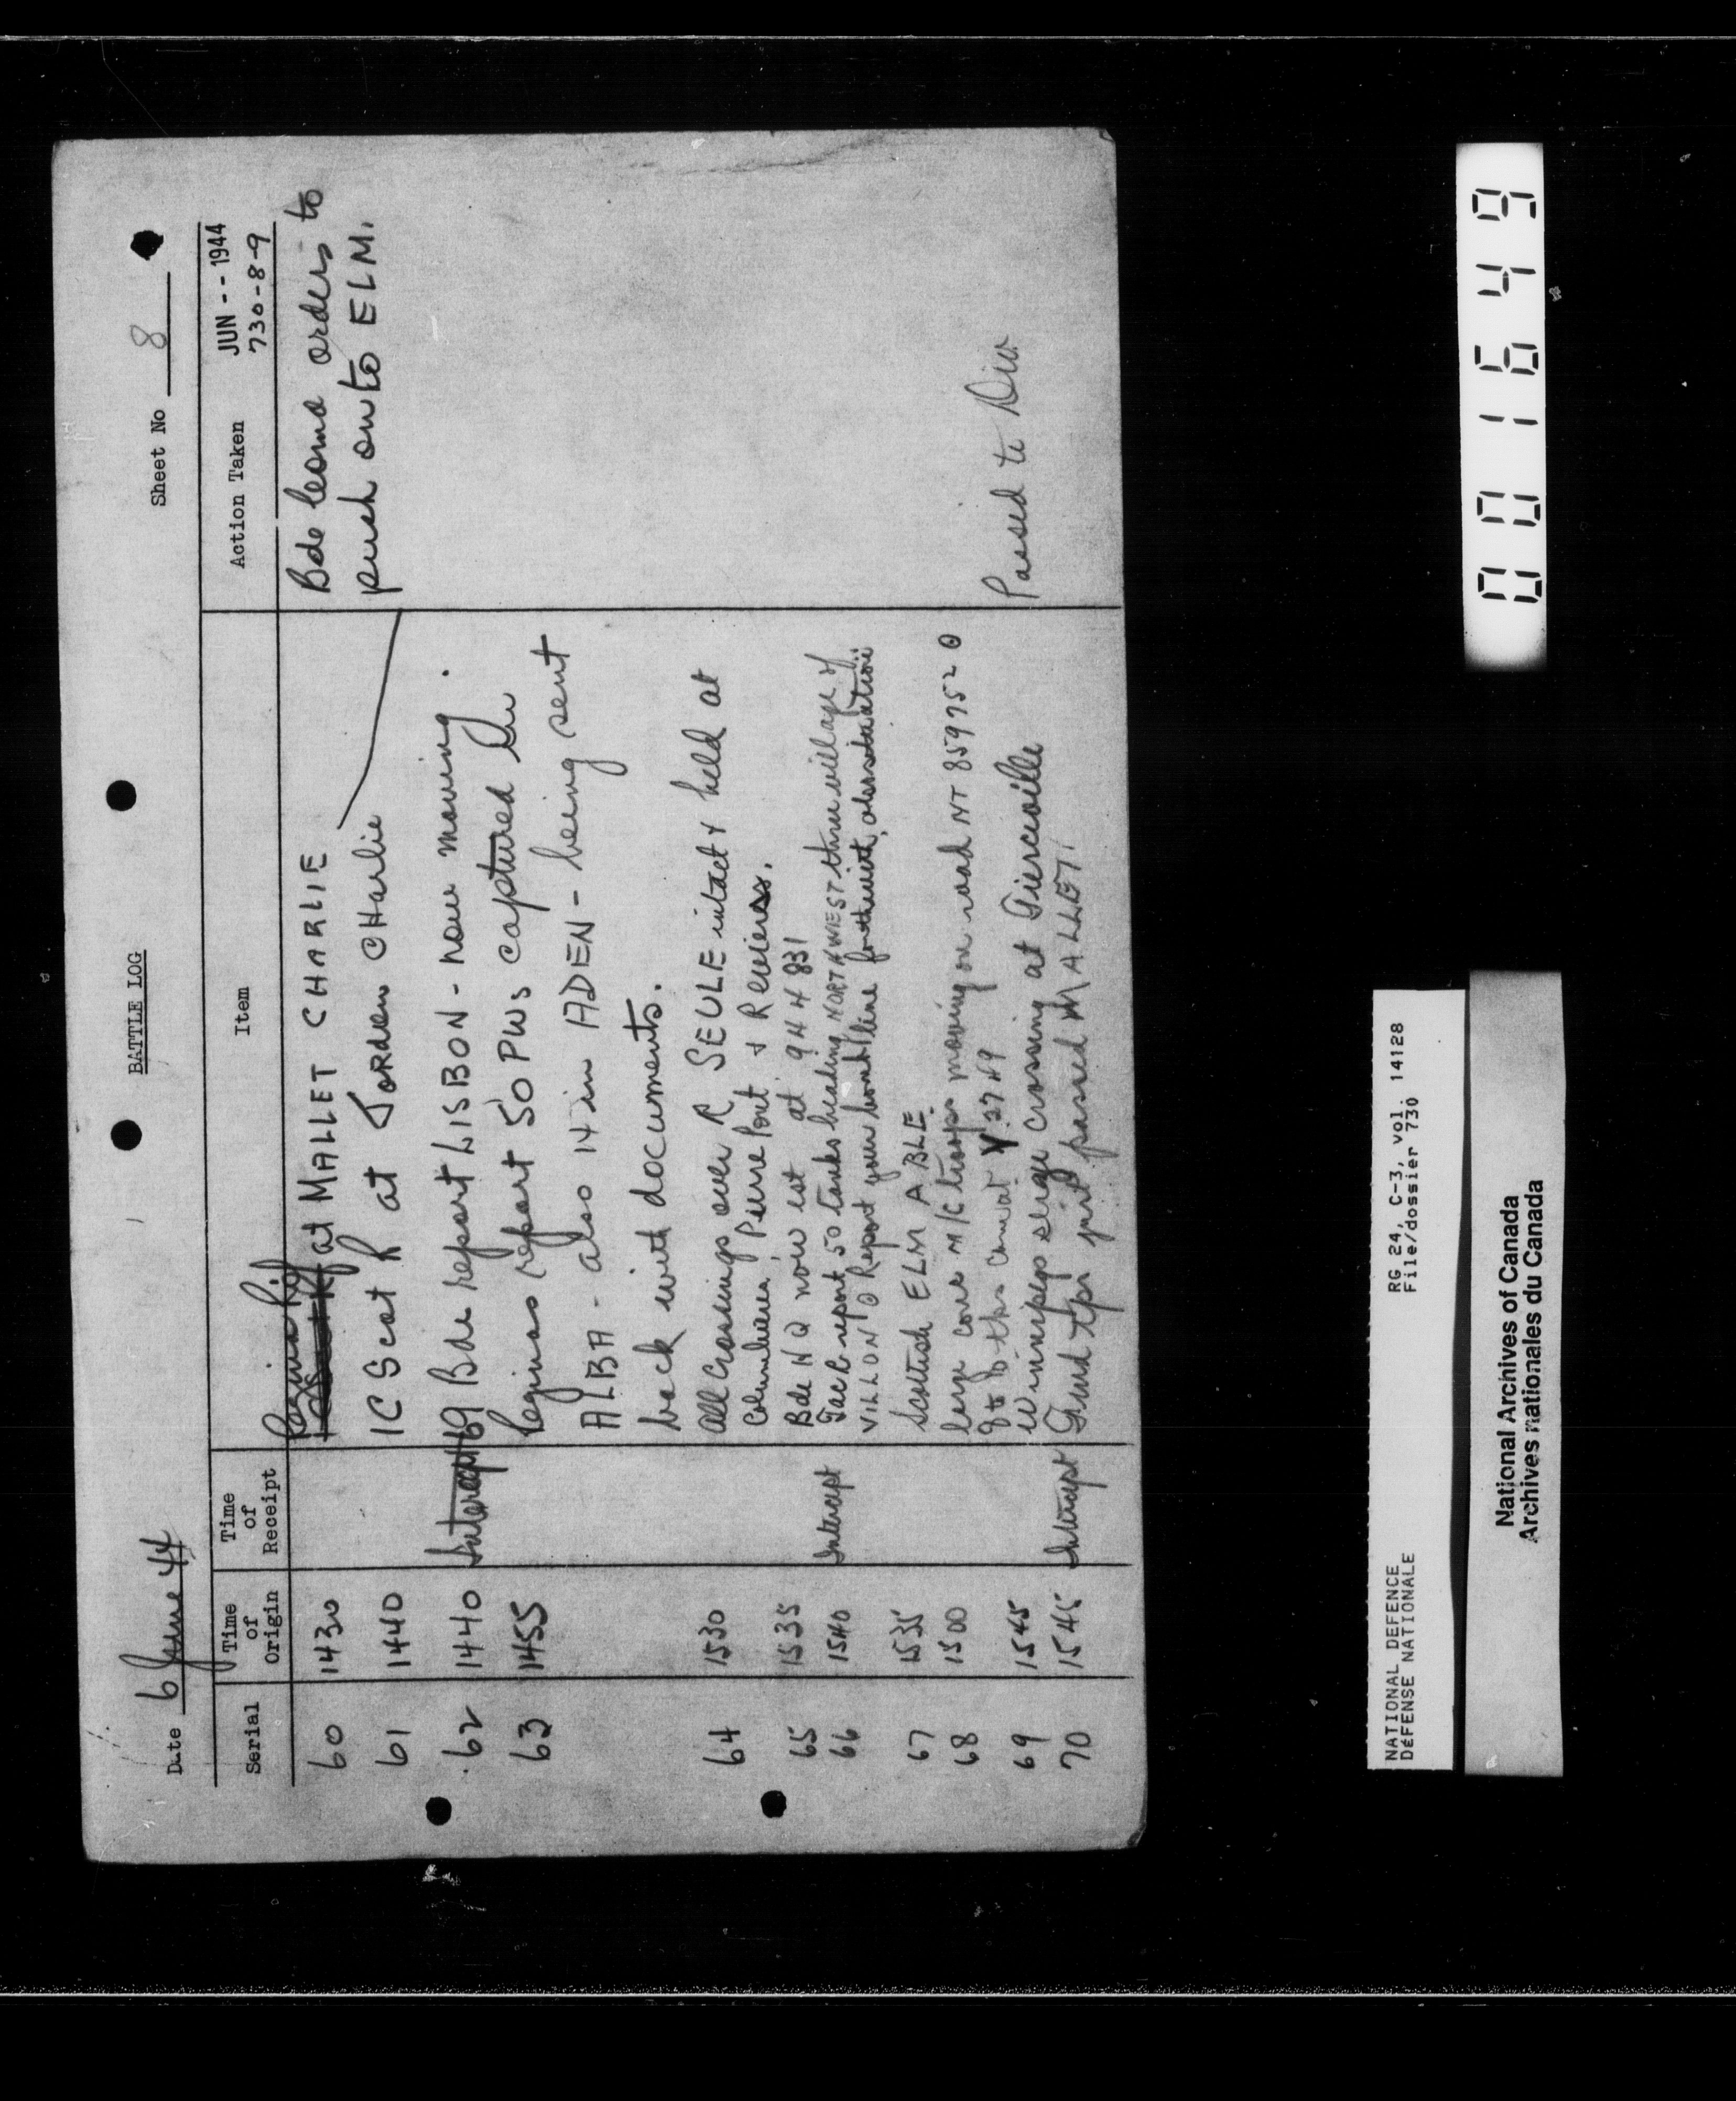 BATTLE LOG
Date 6 June 44
Sheet No 8
Serial
Time
of
Origin
Time
of
Receipt
Item
Action Taken
JUN -- 1944
730-8-9
60 1430 Regina Rif at MALLET CHARLIE
Bde Comd orders to
push on to ELM.
61 1440 1C Scot R at Jordan CHarlie
62 1440 Intercept 69 Bde report LISBON - now moving.
63 1455 Reginas report 50 PWs captured in
ALBA - also 14 in ADEN - being sent
back with documents.
64 1530 All Crossings over R SEULE intact & held at
Columbiers, Pierre Pont & Reviers.
65 1535 Bde HQ now est at 944831
66 1540 Intercept Tac R report 50 tanks heading NORTH WEST thru village of
VILLON Report your bomb line forthwith, also situation
67 1535 Scottish ELM ABLE.
68 1500 large conc M/C troops moving on road NT 859752
at
69 1545 Winnipegs seige crossing at Tierceville
Passed to Div
70 1545 Intercept just passed MALLET.
NATIONAL DEFENCE
DÉFENSE NATIONALE
RG 24, C-3, vol. 14128
File/dossier 730
National Archives of Canada
Archives nationales du Canada
001649